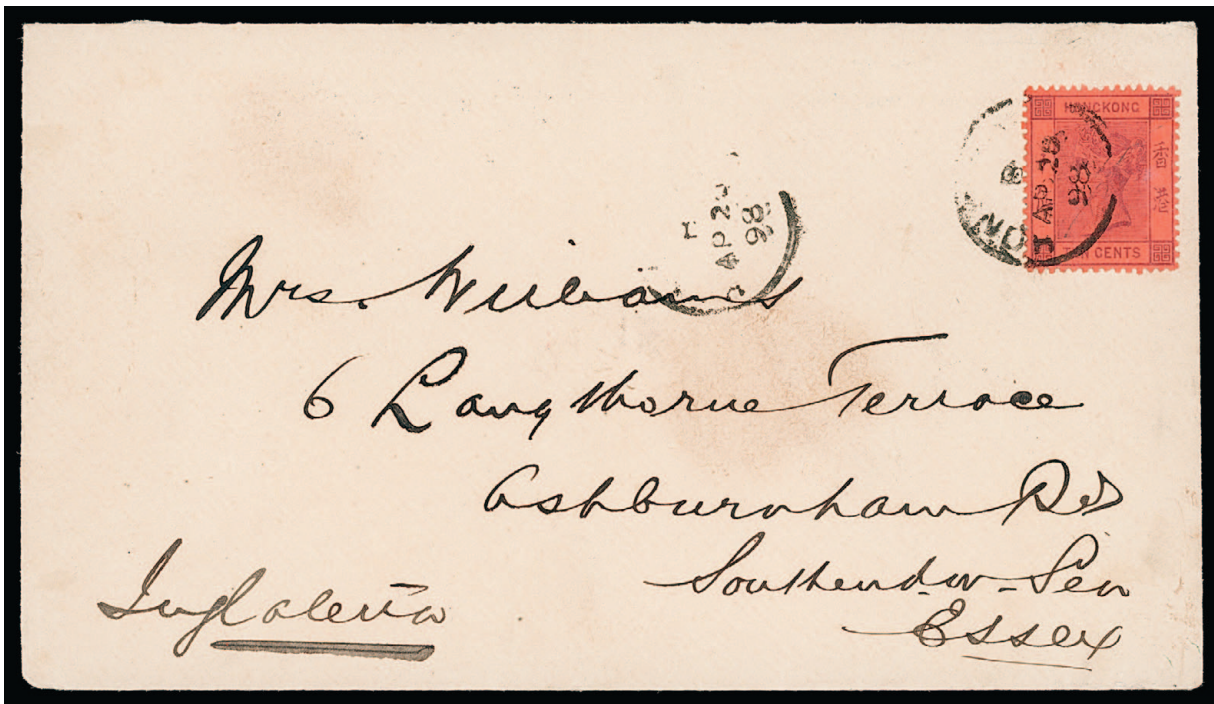 HONGKONG
香港
TEN CENTS
B
AP 20
98
H
AP 20
98
Mrs. Williams
6 Langthorne Terrace
Ashburnham Rd
Southend-on-Sea
Essex
Inglaterra